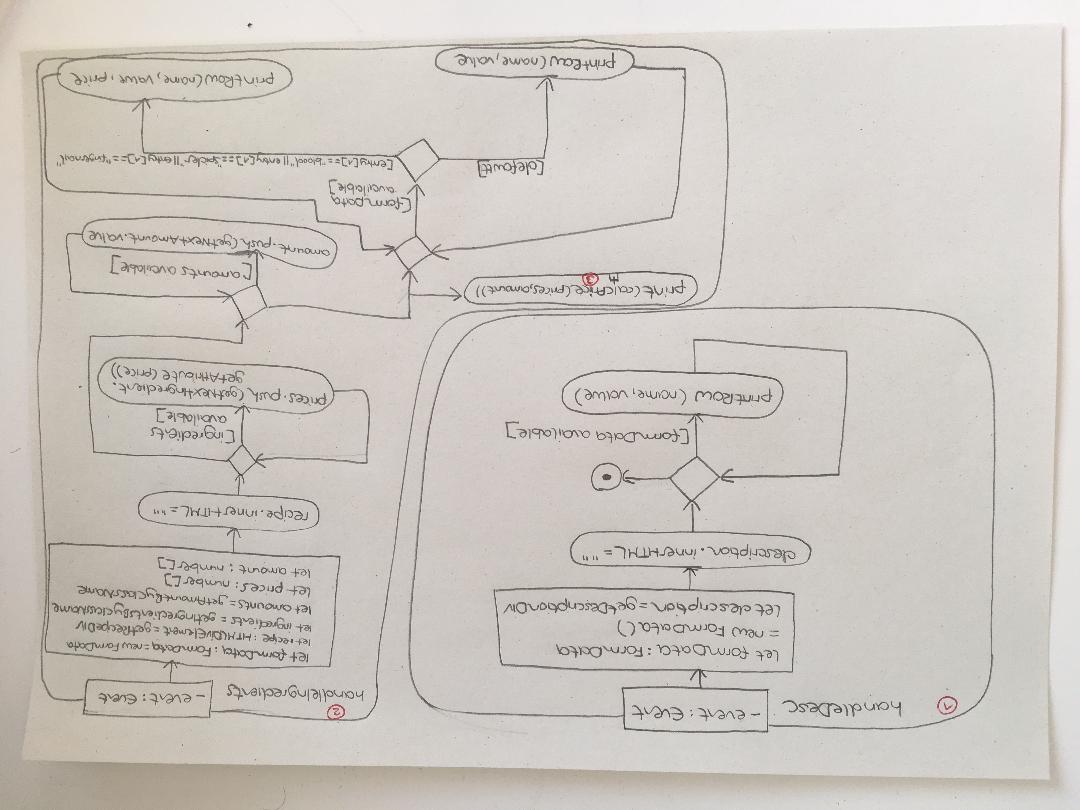 1
handleDesc
- event: Event
let formData: FormData
= new FormData()
let description = getDescriptionDIV
description.innerHTML = ""
[formData available]
printRow (name, value)
2
handleIngredients
- event: Event
let formData: FormData = new FormData
let recipe: HTMLDivElement = getRecipeDIV
let ingredients = getIngredientsByClassName
let amounts = getAmountByClassName
let prices: number[]
let amount: number[]
recipe.innerHTML = ""
[ingredients
available]
prices.push (getNextIngredient.
getAttribute (price))
[amounts available]
amount.push (getNextAmount.value
print (calcPrice (prices, amount))
3
[formData
available]
[default]
[entry[1]=="blood"||entry[1]=="spider"||entry[1]=="fingernail"
printRow (name, value
printRow (name, value, price